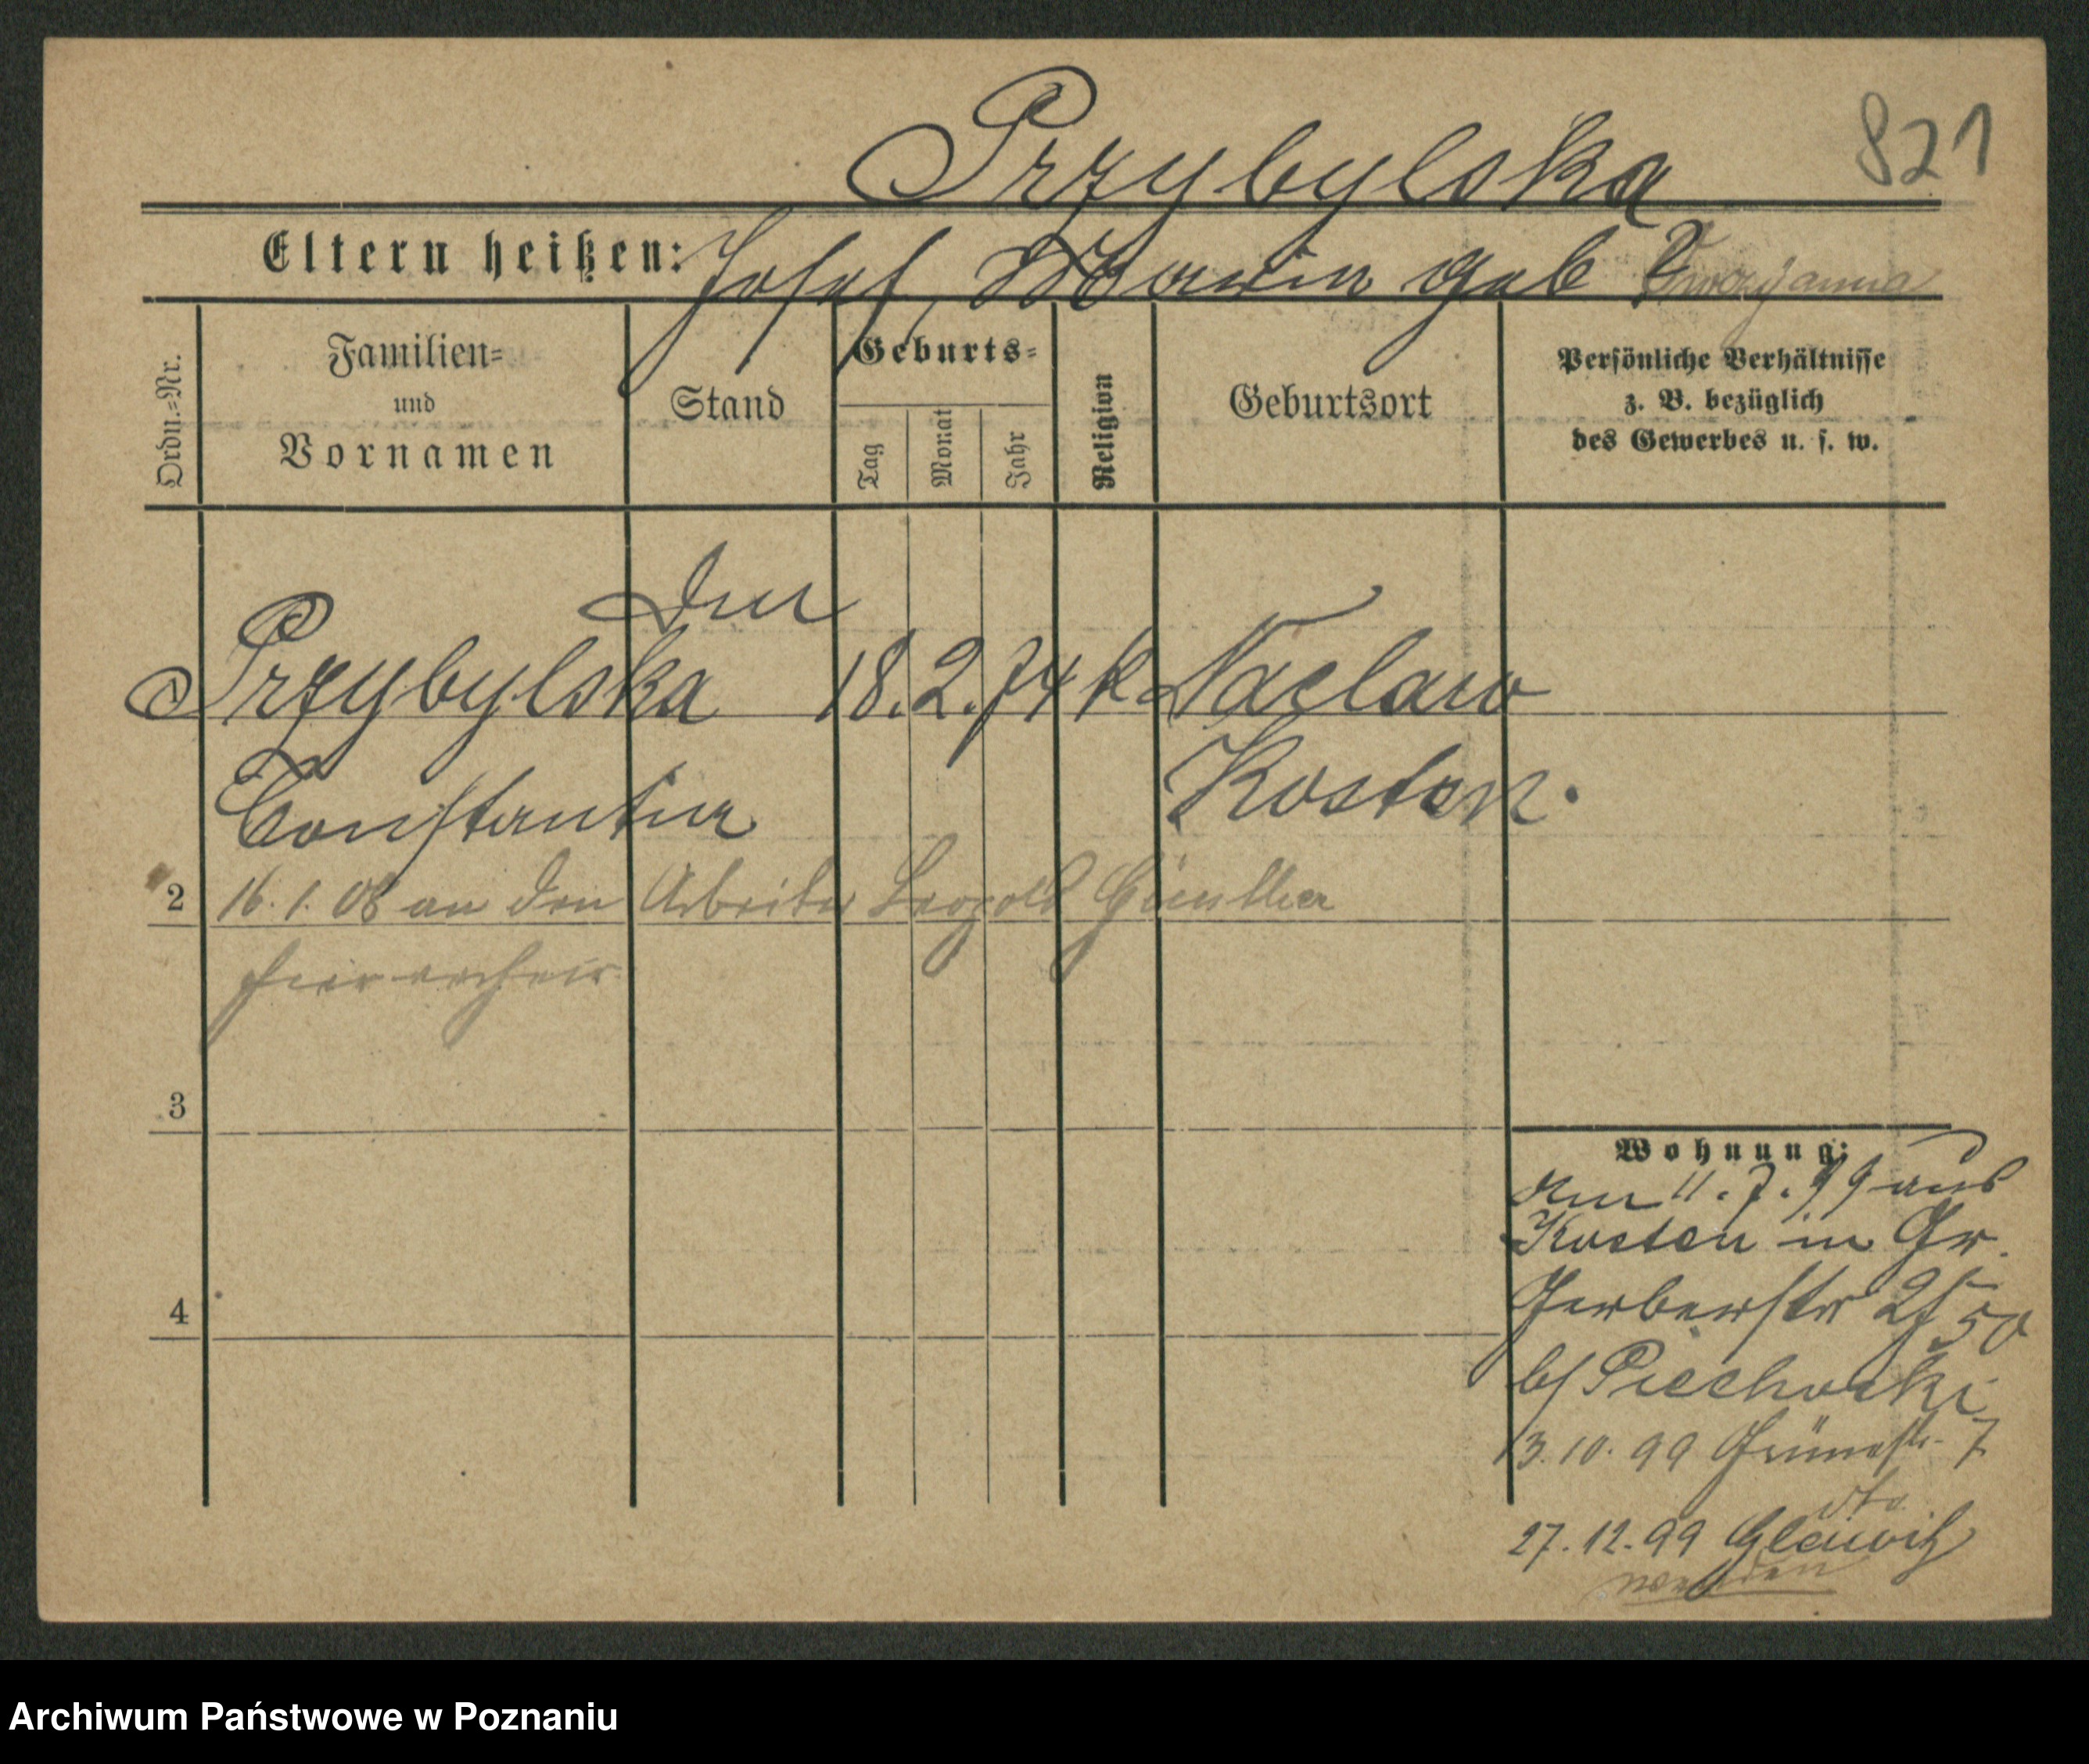 821
Przybylska
Eltern heißen: Josef, Maria geb
Ordn.=Nr.
Familien=
und
Vornamen
Stand
Geburts=
Tag
Monat
Jahr
Religion
Geburtsort
Persönliche Verhältnisse
z. B. bezüglich
des Gewerbes u. s. w.
Przybylska 18. 2. 74 k Naclaw
Constantia Kosten.
2 16. 1. 08 an den Arbeiter Leopold Günther
3
4
Wohnung:
am 11. 7. 99 aus
Kosten in Gr.
Gerberstr 25 50
b/ Piechocki
3. 10. 99 Grünestr. 7
27. 12. 99 Gleiwitz
Archiwum Państwowe w Poznaniu